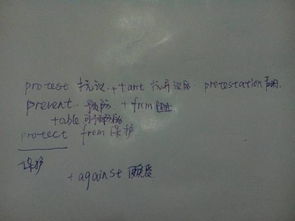 protest 抗议 + tant 抗异议的 protestation 声明
prevent 预防 + from 阻止
+ able 可预防的
protect from 保护
保护
+ against